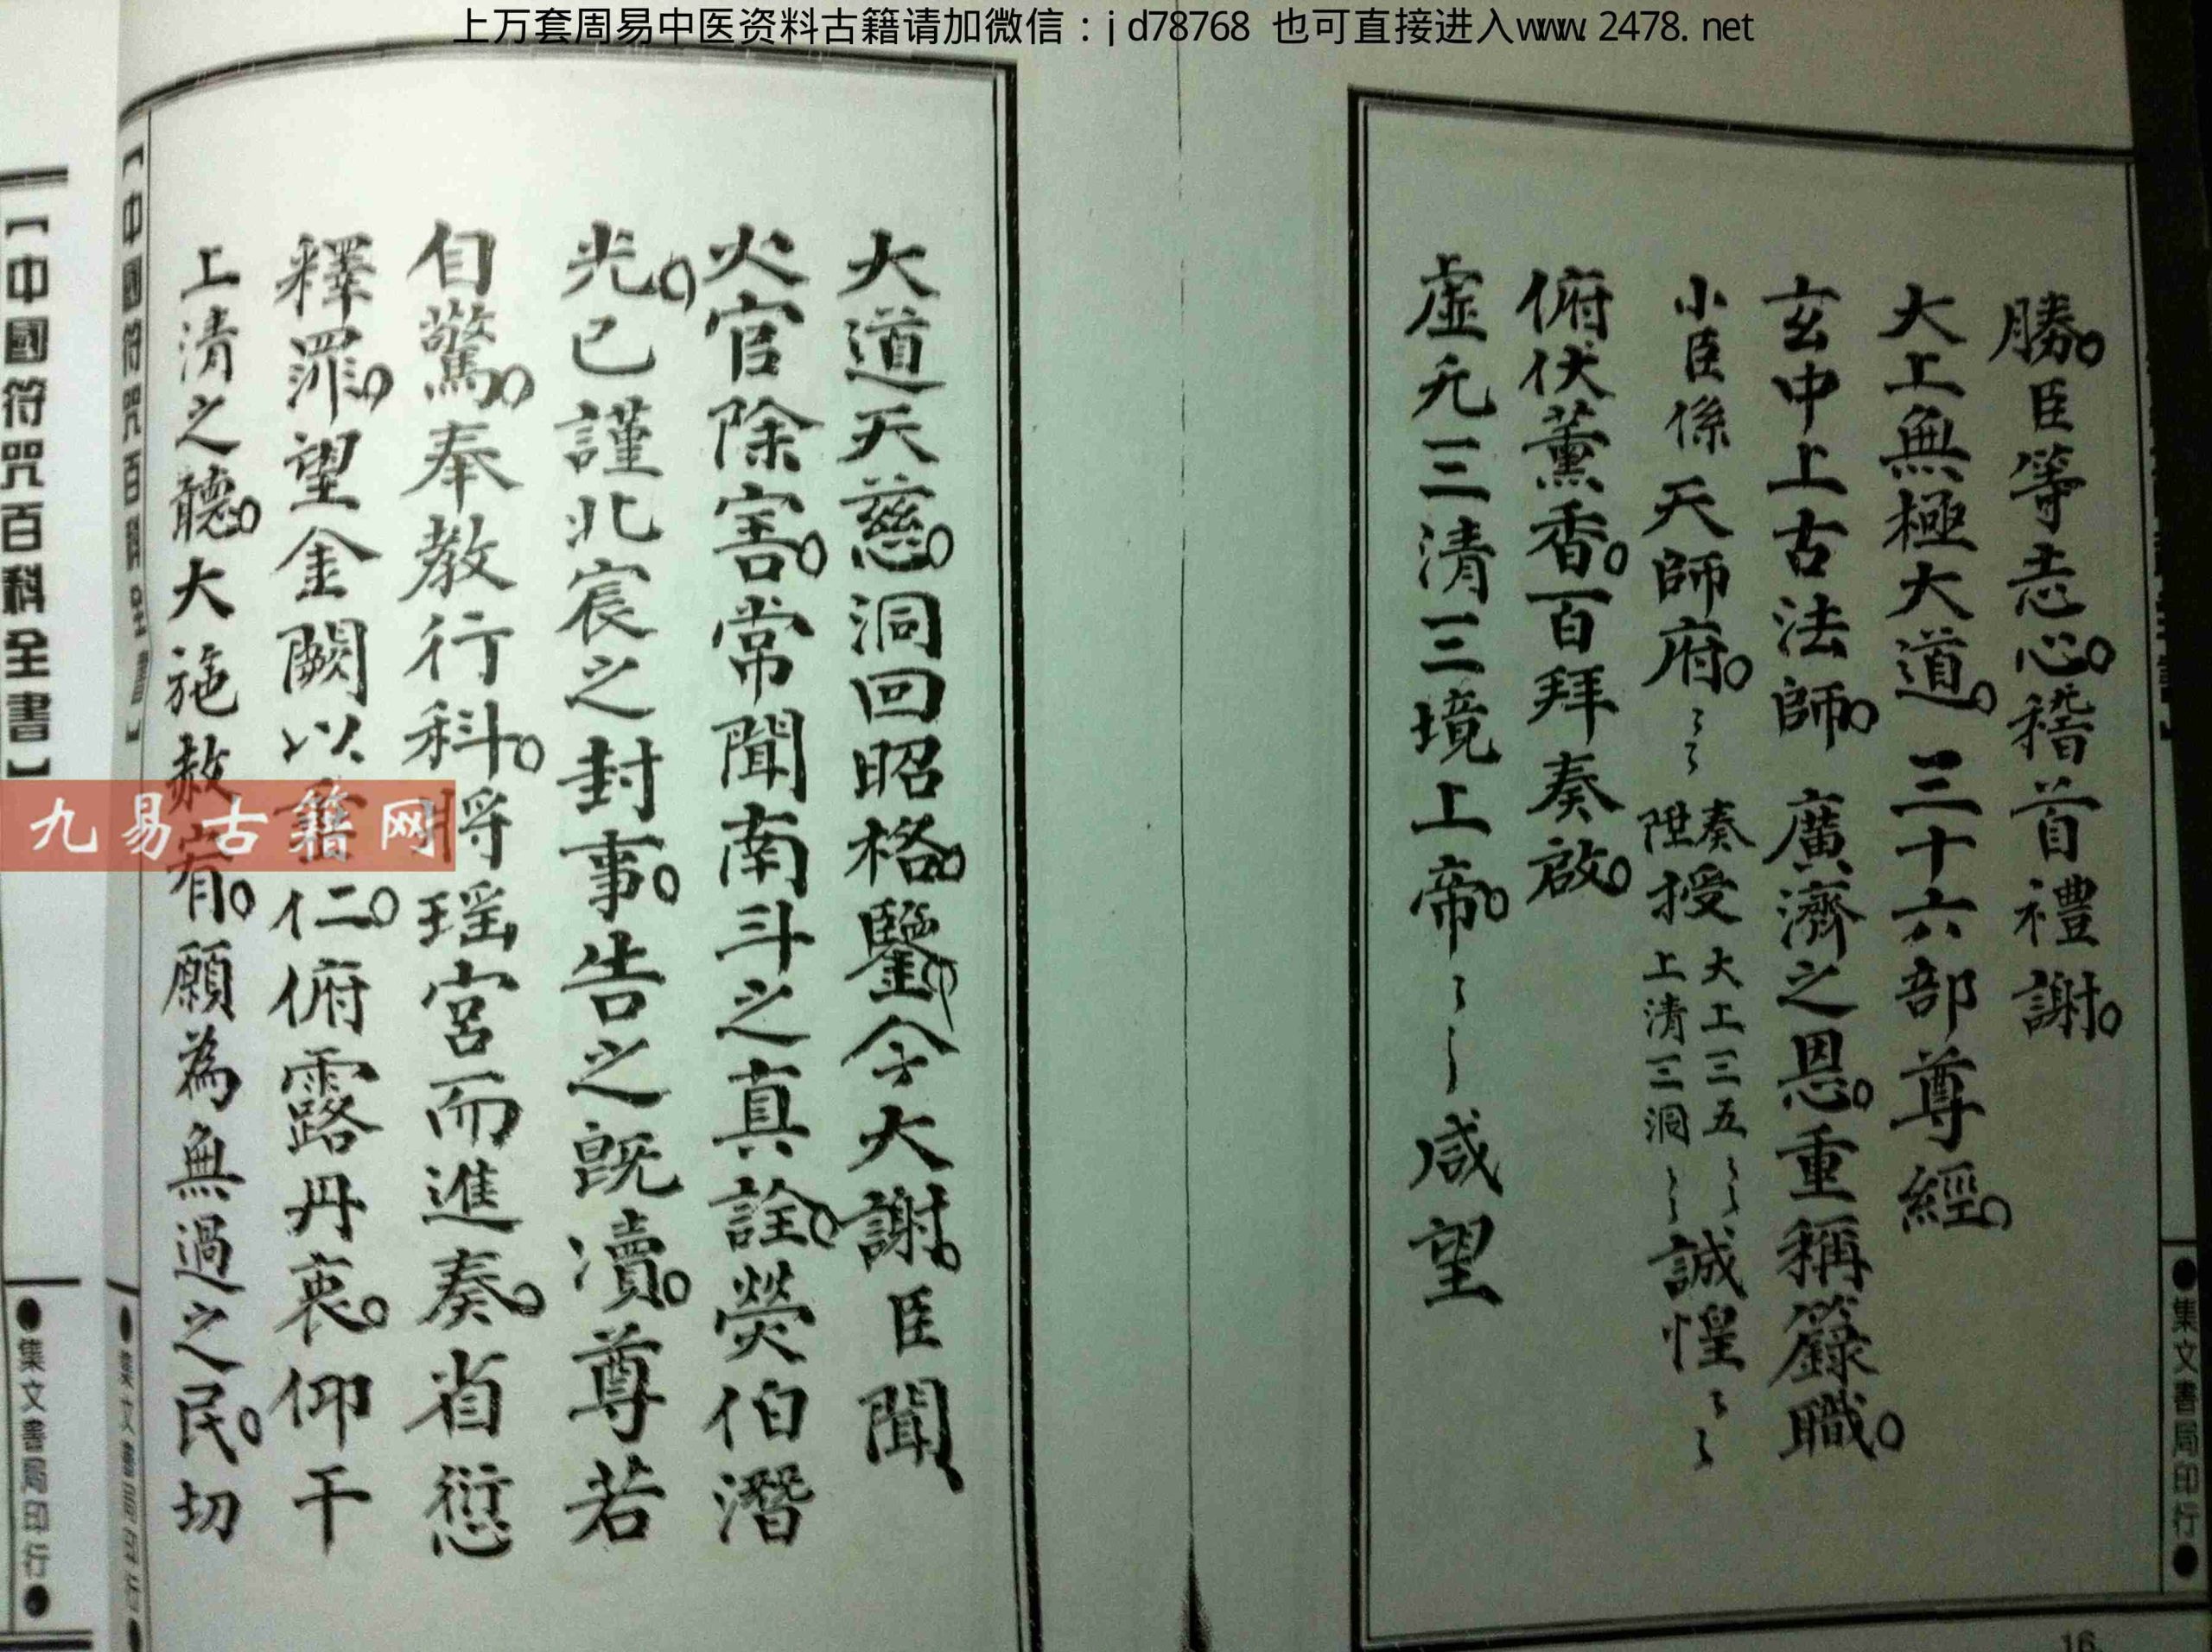 上万套周易中医资料古籍请加微信：jd78768 也可直接进入www.2478.net
勝。臣等恚心。稽首禮謝。
大上無極大道。三十六部尊經。
玄中上古法師。廣濟之恩。重稱籙職。
小臣係天師府。〻〻奏陞授大上三五〻〻上清三洞〻〻誠惶〻〻
俯伏薰香。百拜奏啟。
虛无三清三境上帝。〻〻咸望
大道天慈。洞回昭格。鑒今大謝。臣聞
火官除害。常聞南斗之真詮。熒伯潛
光。已謹北宸之封事。告之既瀆。尊若
自驚。奉教行科。將瑶宮而進奏。省愆
釋罪。望金闕以 仁。俯露丹衷。仰干
上清之聽。大施赦宥。願為無過之民。切
【中國符咒百科全書】
●集文書局印行●
【中國符咒百科全書】
●集文書局印行●
●集文書局印行●
16
九易古籍网